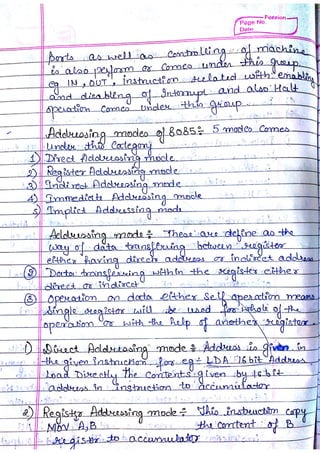 Passion
Page No.
Date
Ports as well as controlling of machine
is also perform or comes under this group
eg IN, OUT, instruction related with enabling
and disabling of Interrupt and also Halt
operation comes under this group.
Addressing modes of 8085÷ 5 modes comes
Under this Category
1) Direct Addressing mode
2) Register Addressing mode
3) Indirect Addressing mode
4) Immediate Addressing mode
5) Implict Addressing mode
Addressing mode÷ These are define as the
way of data transferring between register
either having direct address or indirect address
② Data transferring within the register either
direct or indirect
③ Operation on data either self operation means
single register will be used for whole of the
operation or with the help of another register.
1) Direct Addressing mode÷ Address is given in
the given instruction for eg÷ LDA 16 bit Address
Load Directly the Contents given by 16 bit
address in instruction to accumulator
2) Register Addressing mode÷ This instruction copy
MOV A,B the content of B
register to accumulator